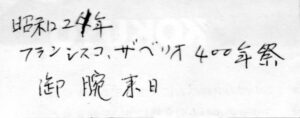 昭和24年
フランシスコ、ザベリオ400年祭
御腕来日